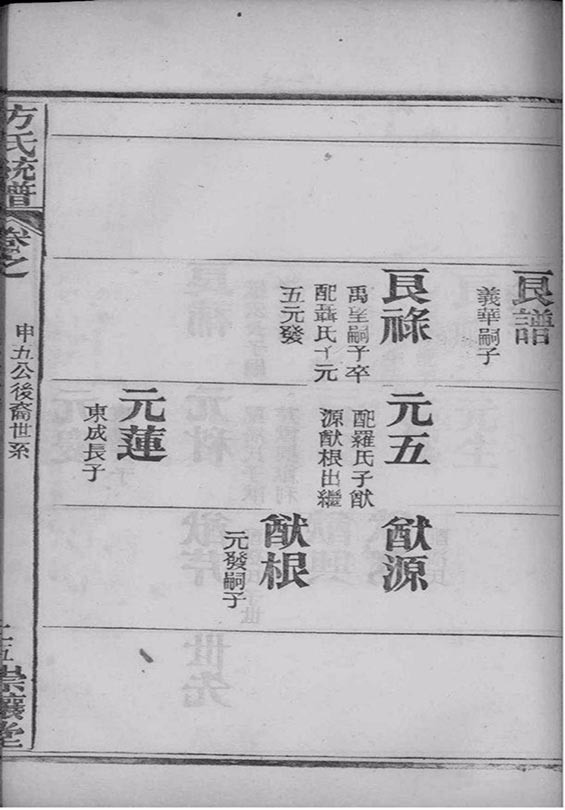 良譜
義華嗣子
良祿
禹望嗣子卒
配聶氏子元
五元發
元五
配羅氏子猷
源猷根出繼
元蓮
東成長子
猷源
猷根
元發嗣子
方氏統譜
卷之
申九公後裔世系
崇讓堂